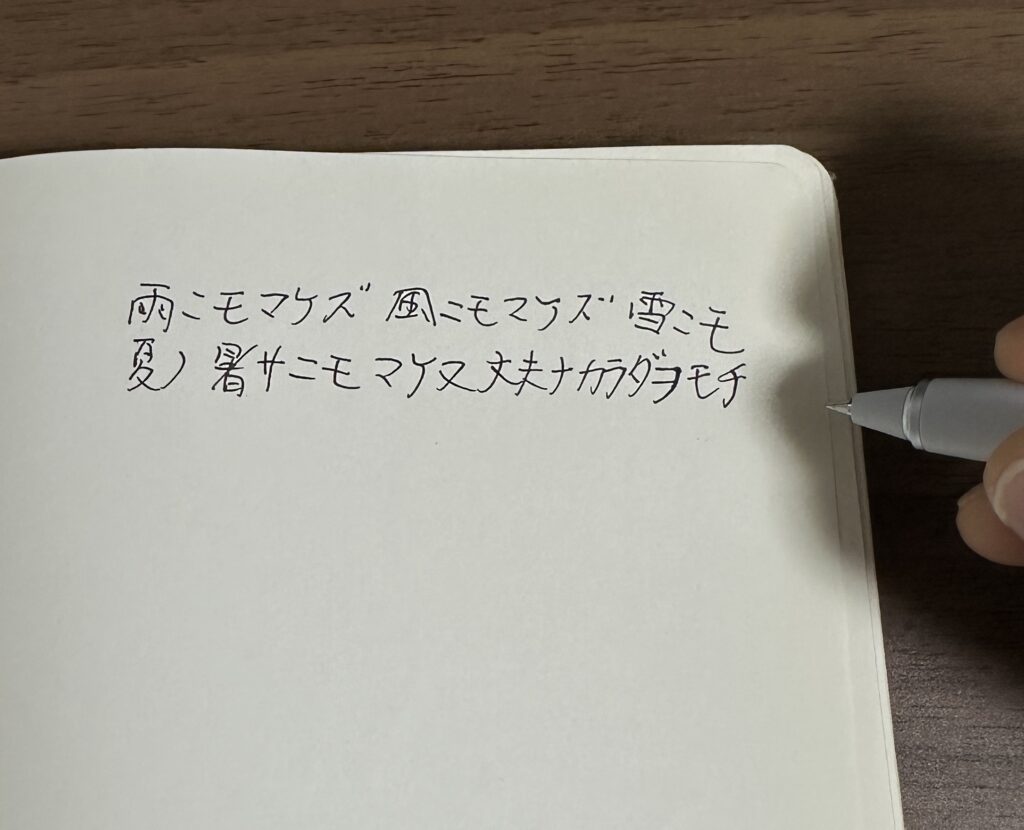 雨ニモマケズ 風ニモマケズ 雪ニモ
夏ノ暑サニモマケヌ丈夫ナカラダヲモチ